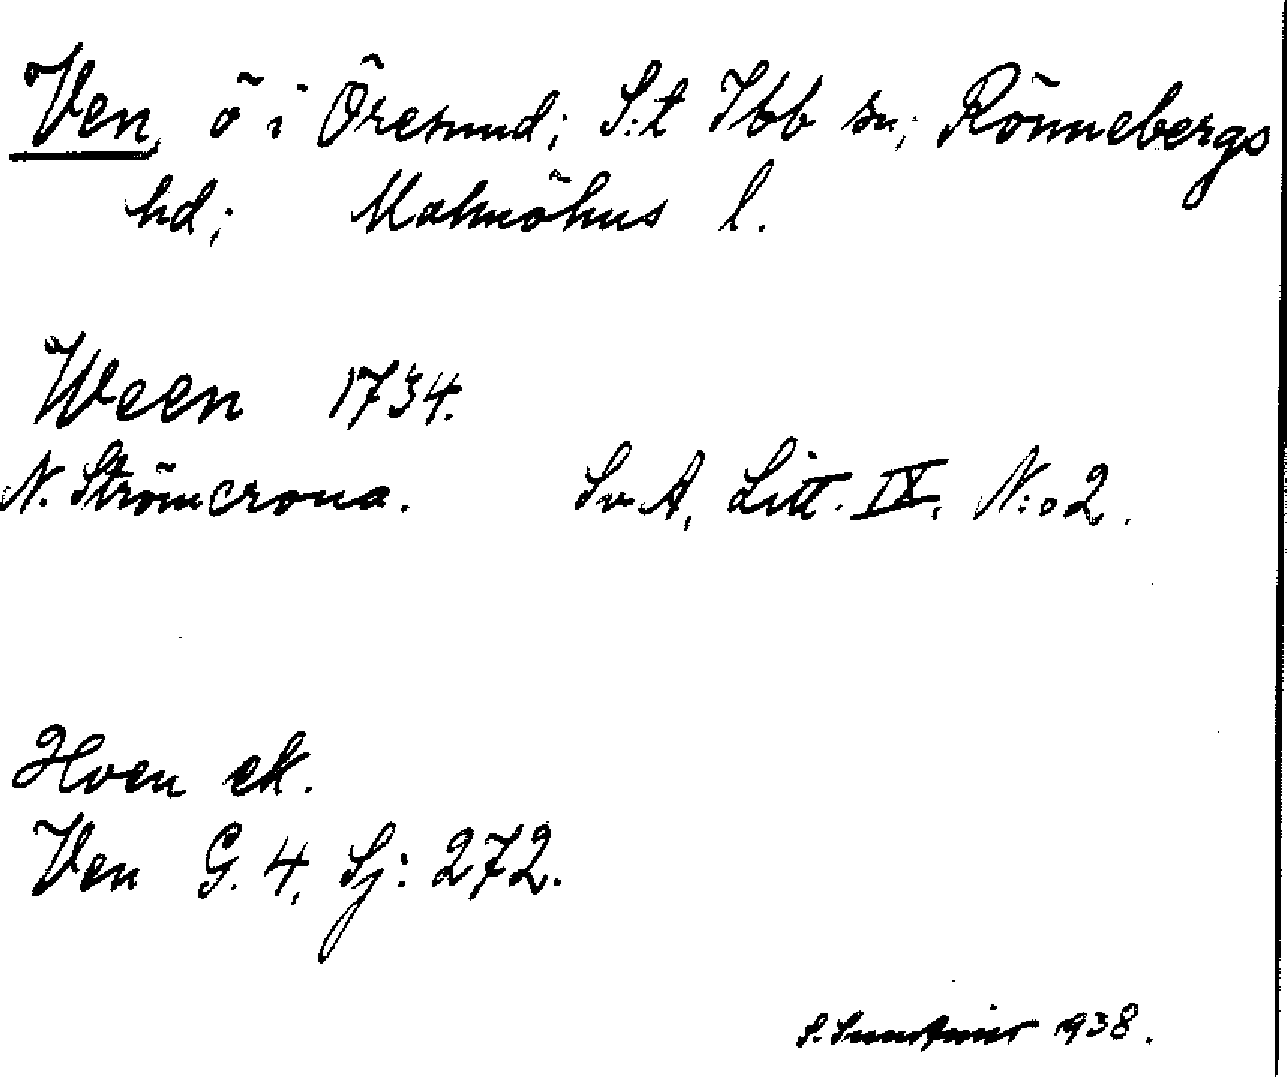 Ven, ö i Öresund; S:t Ibb sn; Rönnebergs
hd; Malmöhus l.
Ween 1734.
N. Strömcrona. Sv. A, Litt. IX, N:o 2.
Hven ek.
Ven G. 4, Sj: 272.
S. 1938.